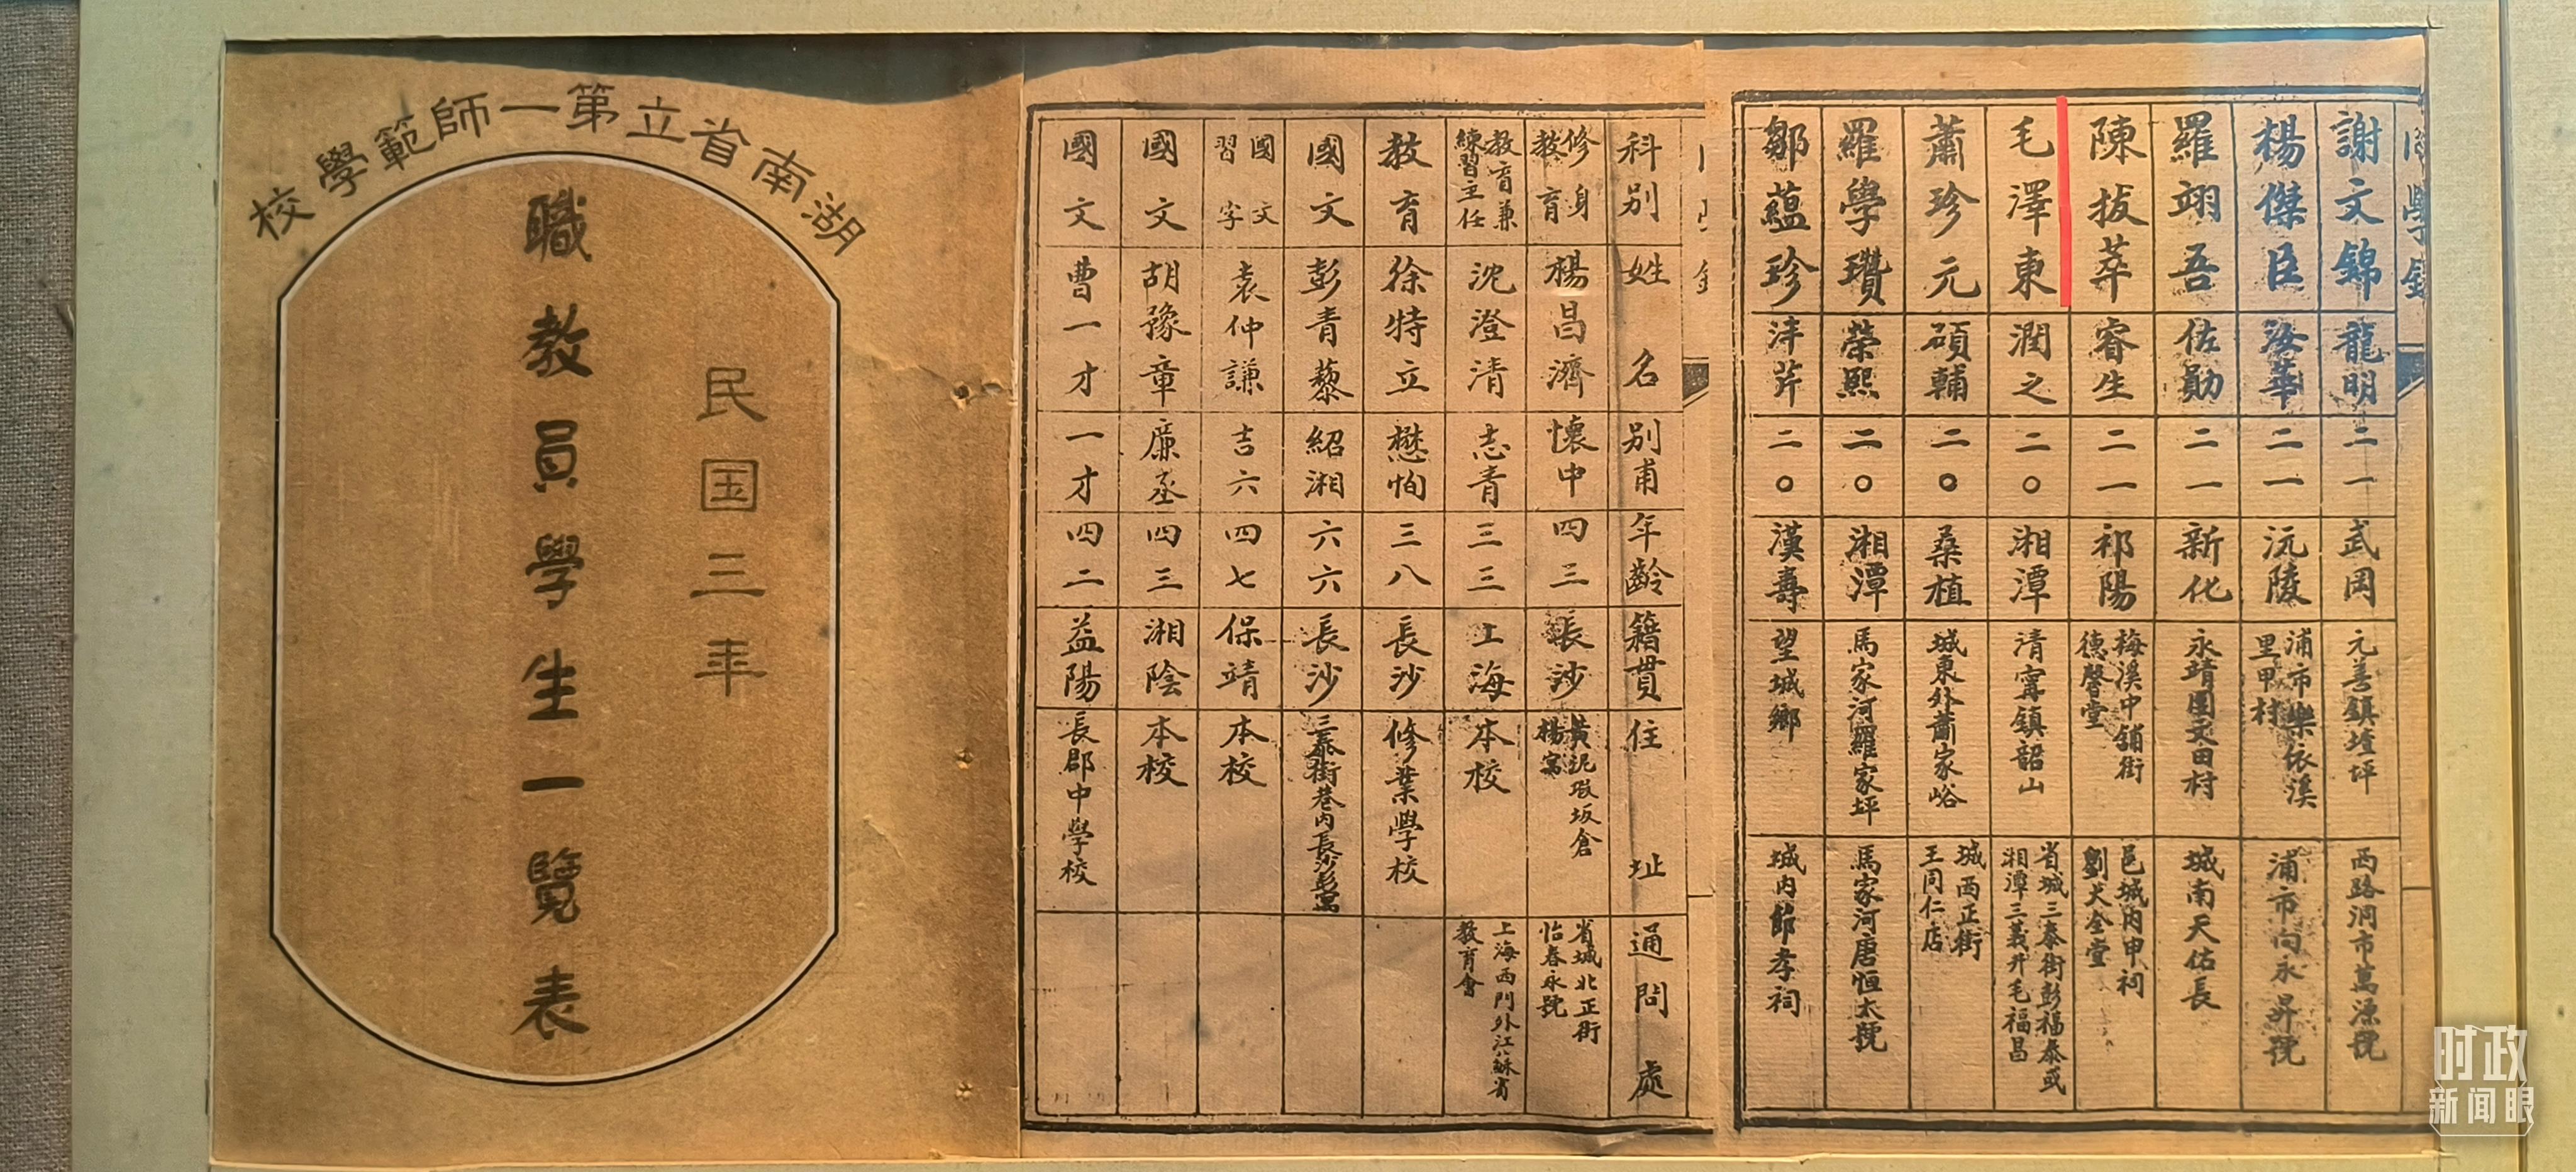 湖南省立第一師範學校
民国三年
職教員學生一覽表
科别 姓名 别甫 年齡 籍貫 住址 通問處
修身教育 楊昌濟 懷中 四三 長沙 黄泥塅坂倉楊寓 省城北正街怡春永號
教育兼練習主任 沈澄清 志青 三三 上海 本校 上海西門外江蘇省教育會
教育 徐特立 懋恂 三八 長沙 修業學校
國文 彭青藜 紹湘 六六 長沙 三泰街巷内長沙彭寓
國文習字 袁仲謙 吉六 四七 保靖 本校
國文 胡豫章 廉丞 四三 湘陰 本校
國文 曹一才 一才 四二 益陽 長郡中學校
同學録
謝文錦 龍明 二一 武岡 元善鎮壇坪 西路洞市萬源號
楊傑臣 海華 二一 沅陵 浦市樂依溪里甲村 浦市向永昇號
羅翊吾 佐勛 二一 新化 永靖團文田村 城南天佑長
陳拔萃 睿生 二一 祁陽 梅溪中舖街德馨堂 邑城内申祠劉大全堂
毛澤東 潤之 二〇 湘潭 清寧鎮韶山 省城三泰街彭福泰或湘潭三義升毛福昌
蕭珍元 碩輔 二〇 桑植 城東外蕭家峪 城西正街王同仁店
羅學瓚 榮熙 二〇 湘潭 馬家河羅家坪 馬家河唐恒太號
鄒藴珍 泮芹 二〇 漢壽 望城鄉 城内節孝祠
时政
新闻眼